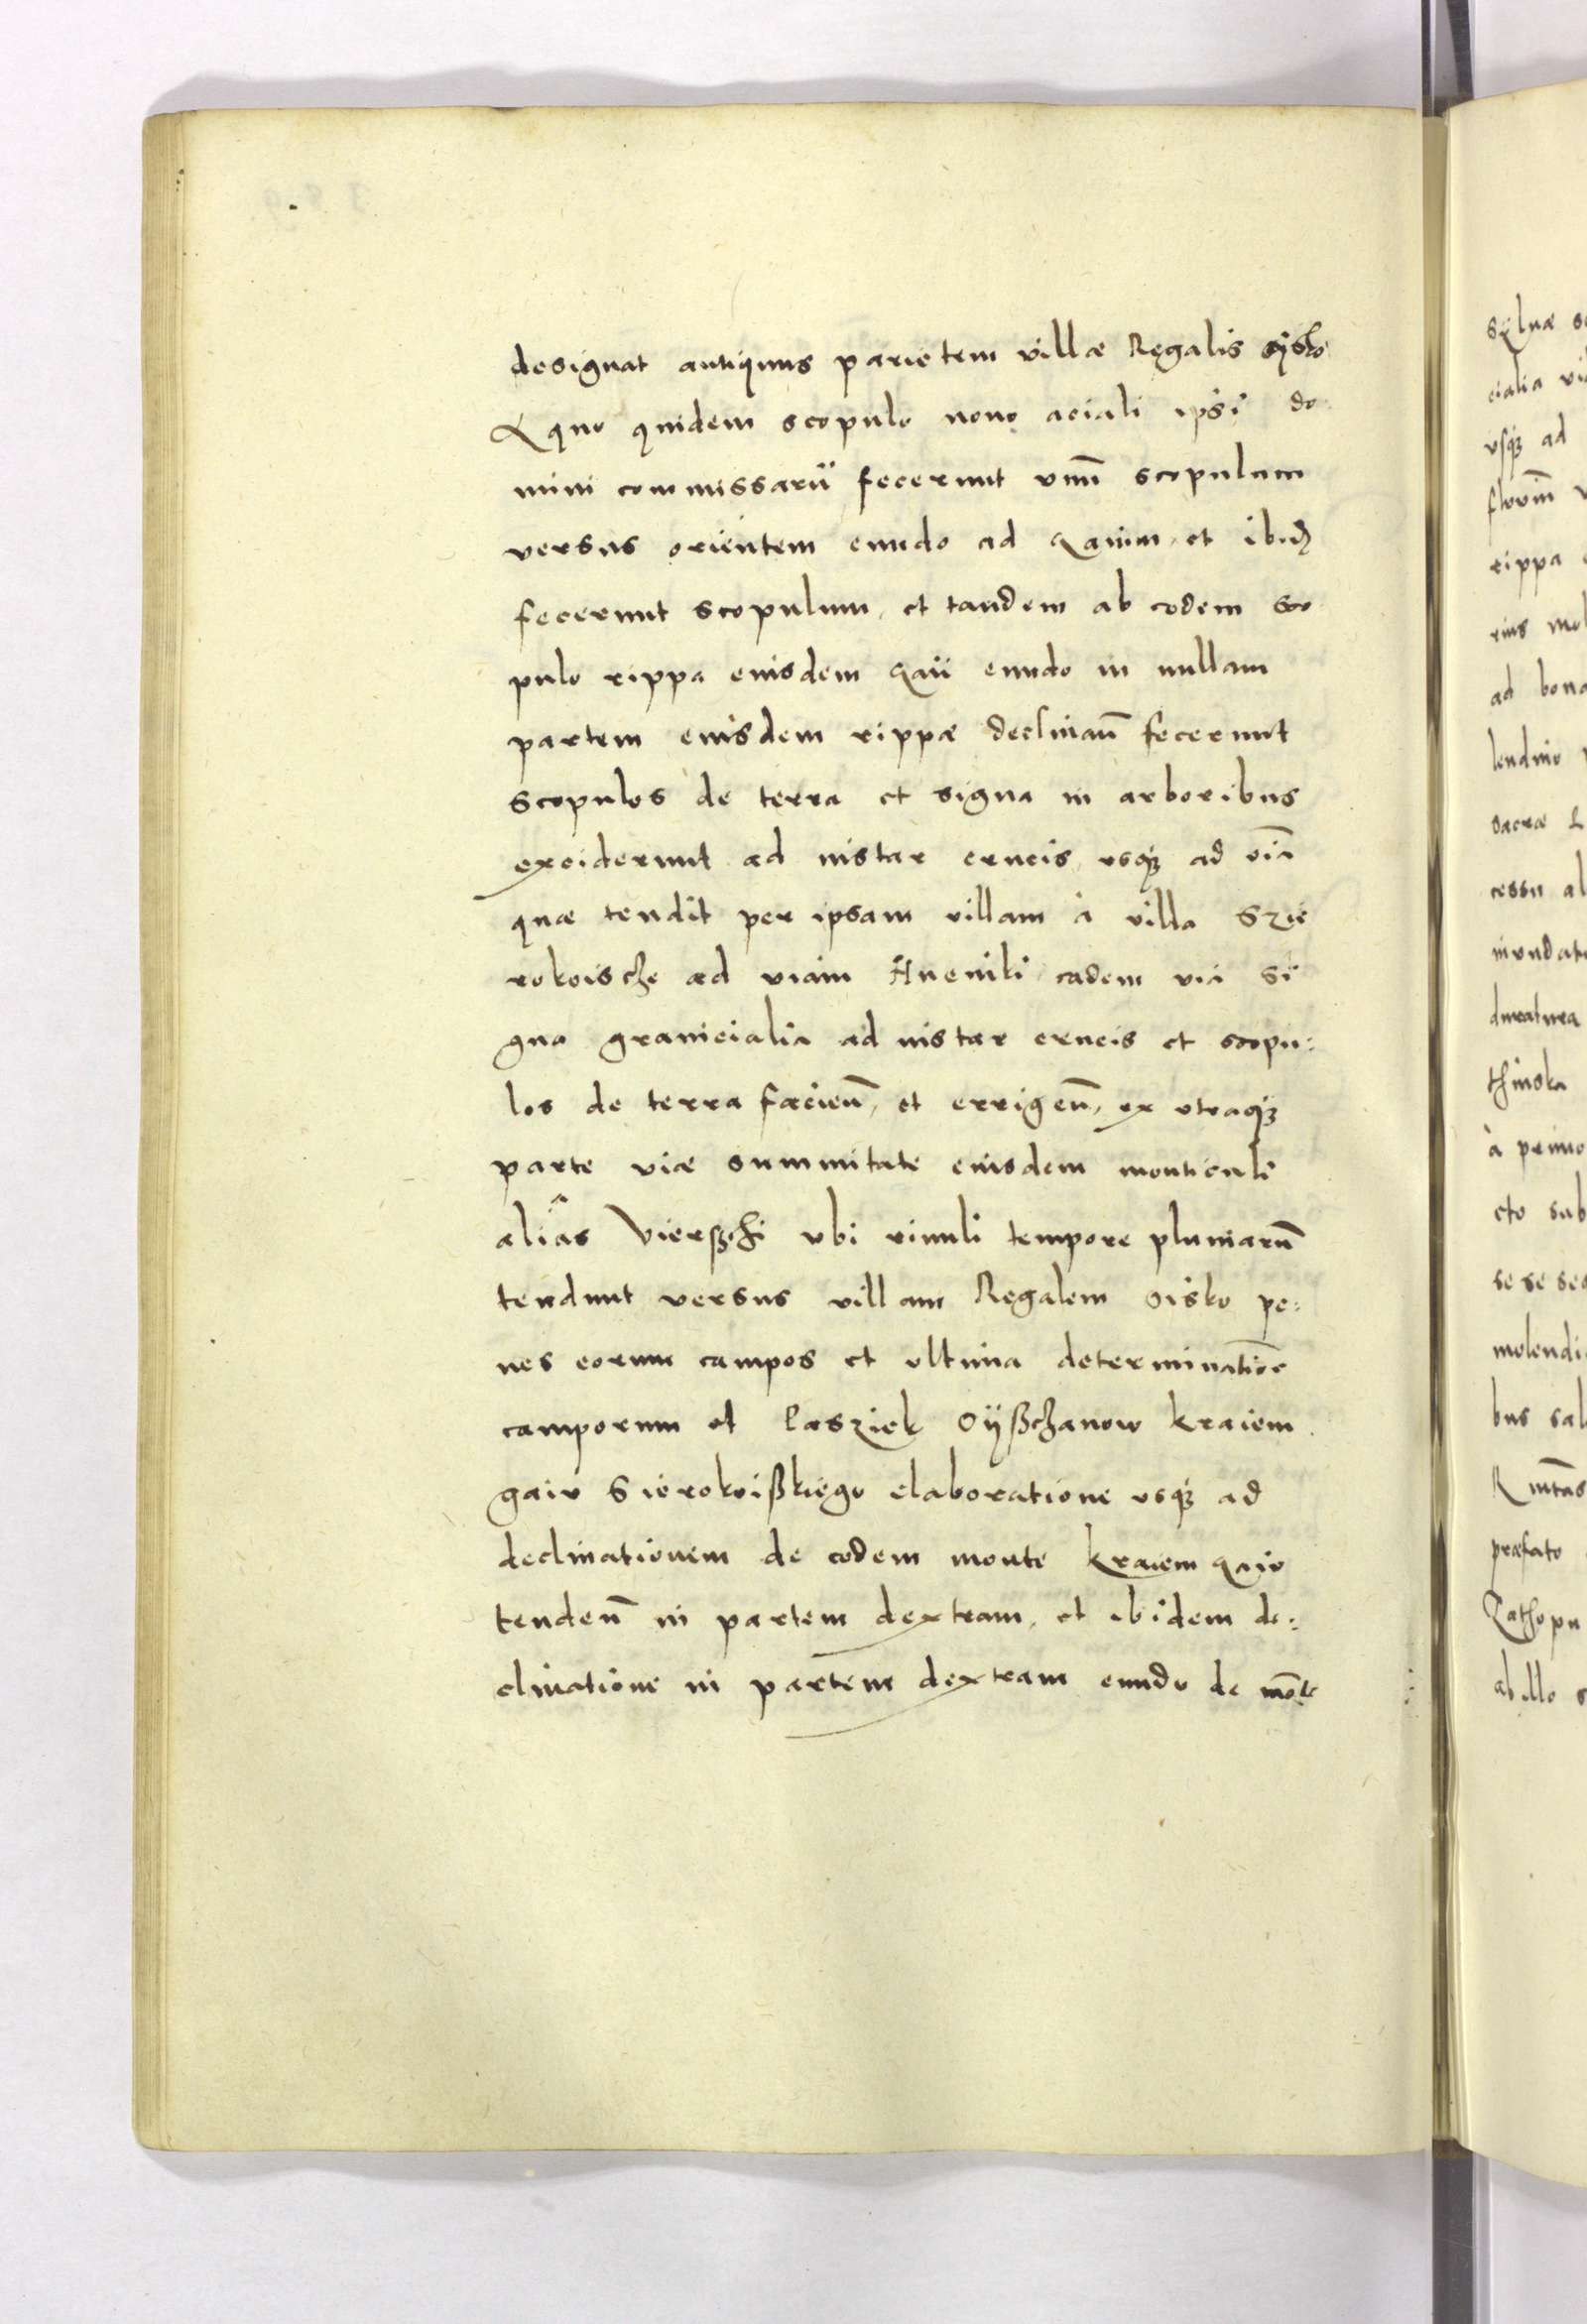 designat antiquus parietem villæ Regalis oÿsko
A quo quidem scopulo nono aciali ipsi do
mini commissarii fecerunt vnū scopulum
versus orientem eundo ad gaium, et ibid
fecerunt scopulum, et tandem ab eodem sco
pulo rippa eiusdem gaii eundo in nullam
partem eiusdem rippæ declinañ fecerunt
scopulos de terra et signa in arboribus
exciderunt ad instar crucis, usq3 ad viã
quæ tendit per ipsam villam à villa Szie
rokoische ad viam eadem via si
gna granicialia ad instar crucis et scopu:
los de terra facieñ, et errigeñ, ex vtraq3
parte viæ summitate eiusdem monticuli
aliâs Vierßchi vbi riuuli tempore pluuiarū
tendunt versus villam Regalem oisko pe:
nes eorum campos et vltima determinatiōe
camporum et Lasziek Oÿßchanow kraiem
gaiv Sierokoißkiego elaboratione vsq3 ad
declinationem de eodem monte kraiem gaiv
tendeñ in partem dextram, et ibidem de:
clinatione in partem dextram eundo de mōte
sÿluæ
cialia
vsq3 ad
fluuiū
rippa
rius mol
ad bona
lendino
sacræ
cessu al
inundat
duratura
thinska
à primo
cto sub
se se sec
molendi
bus sal
præfato
ab illo s